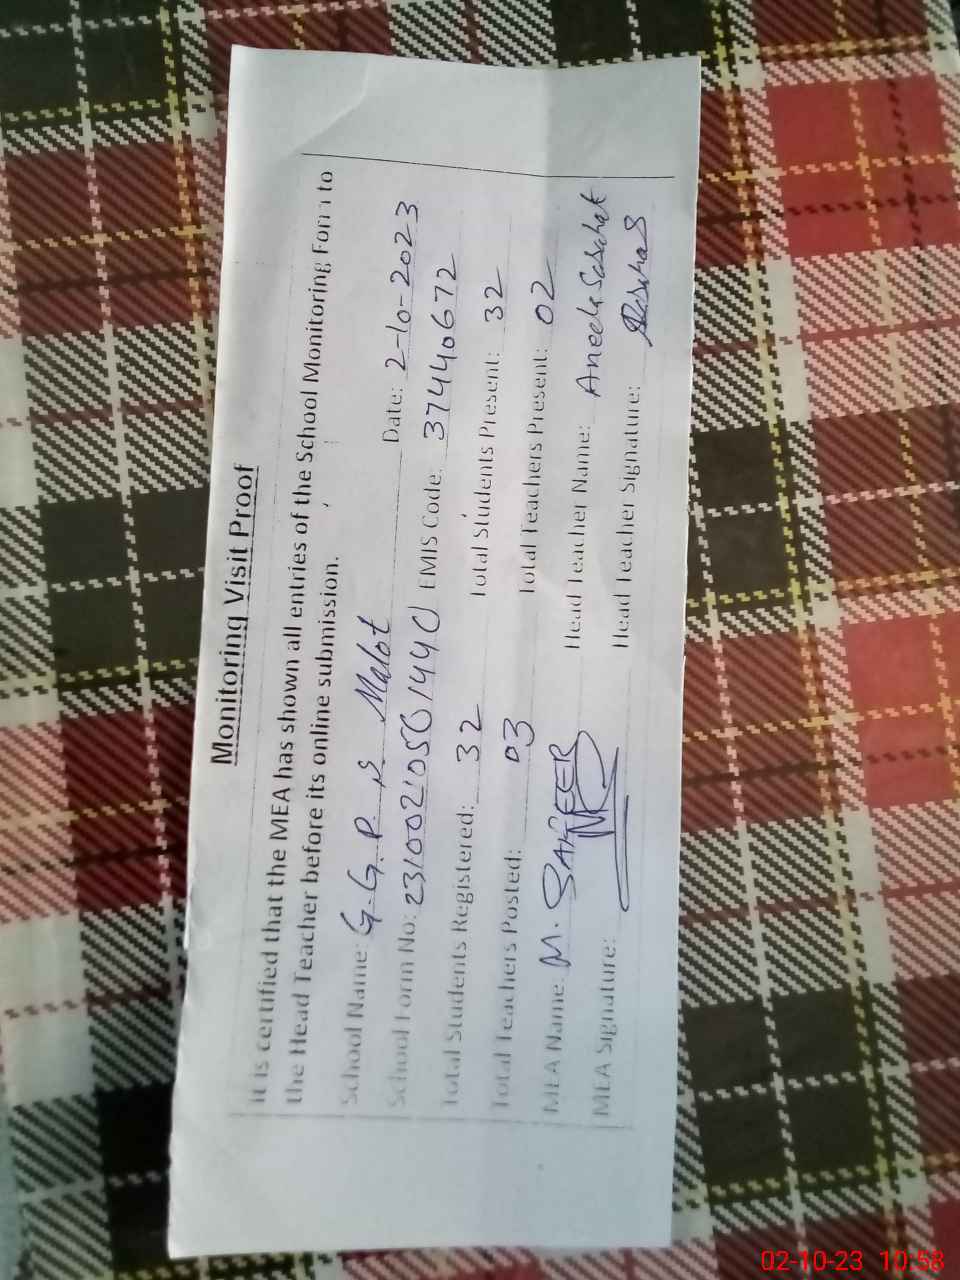 Monitoring Visit Proof
It is certified that the MEA has shown all entries of the School Monitoring Form to
the Head Teacher before its online submission.
School Name: G.G.P.S Malot Date: 2-10-2023
School Form No: EMIS Code. 37440672
Total Students Registered: 32 Total Students Present: 32
Total Teachers Posted: 03 Total Teachers Present: 02
MEA Name M. SAFEER Head Teacher Name: Aneela
MEA Signature: Head Teacher Signature:
02-10-23 10:58